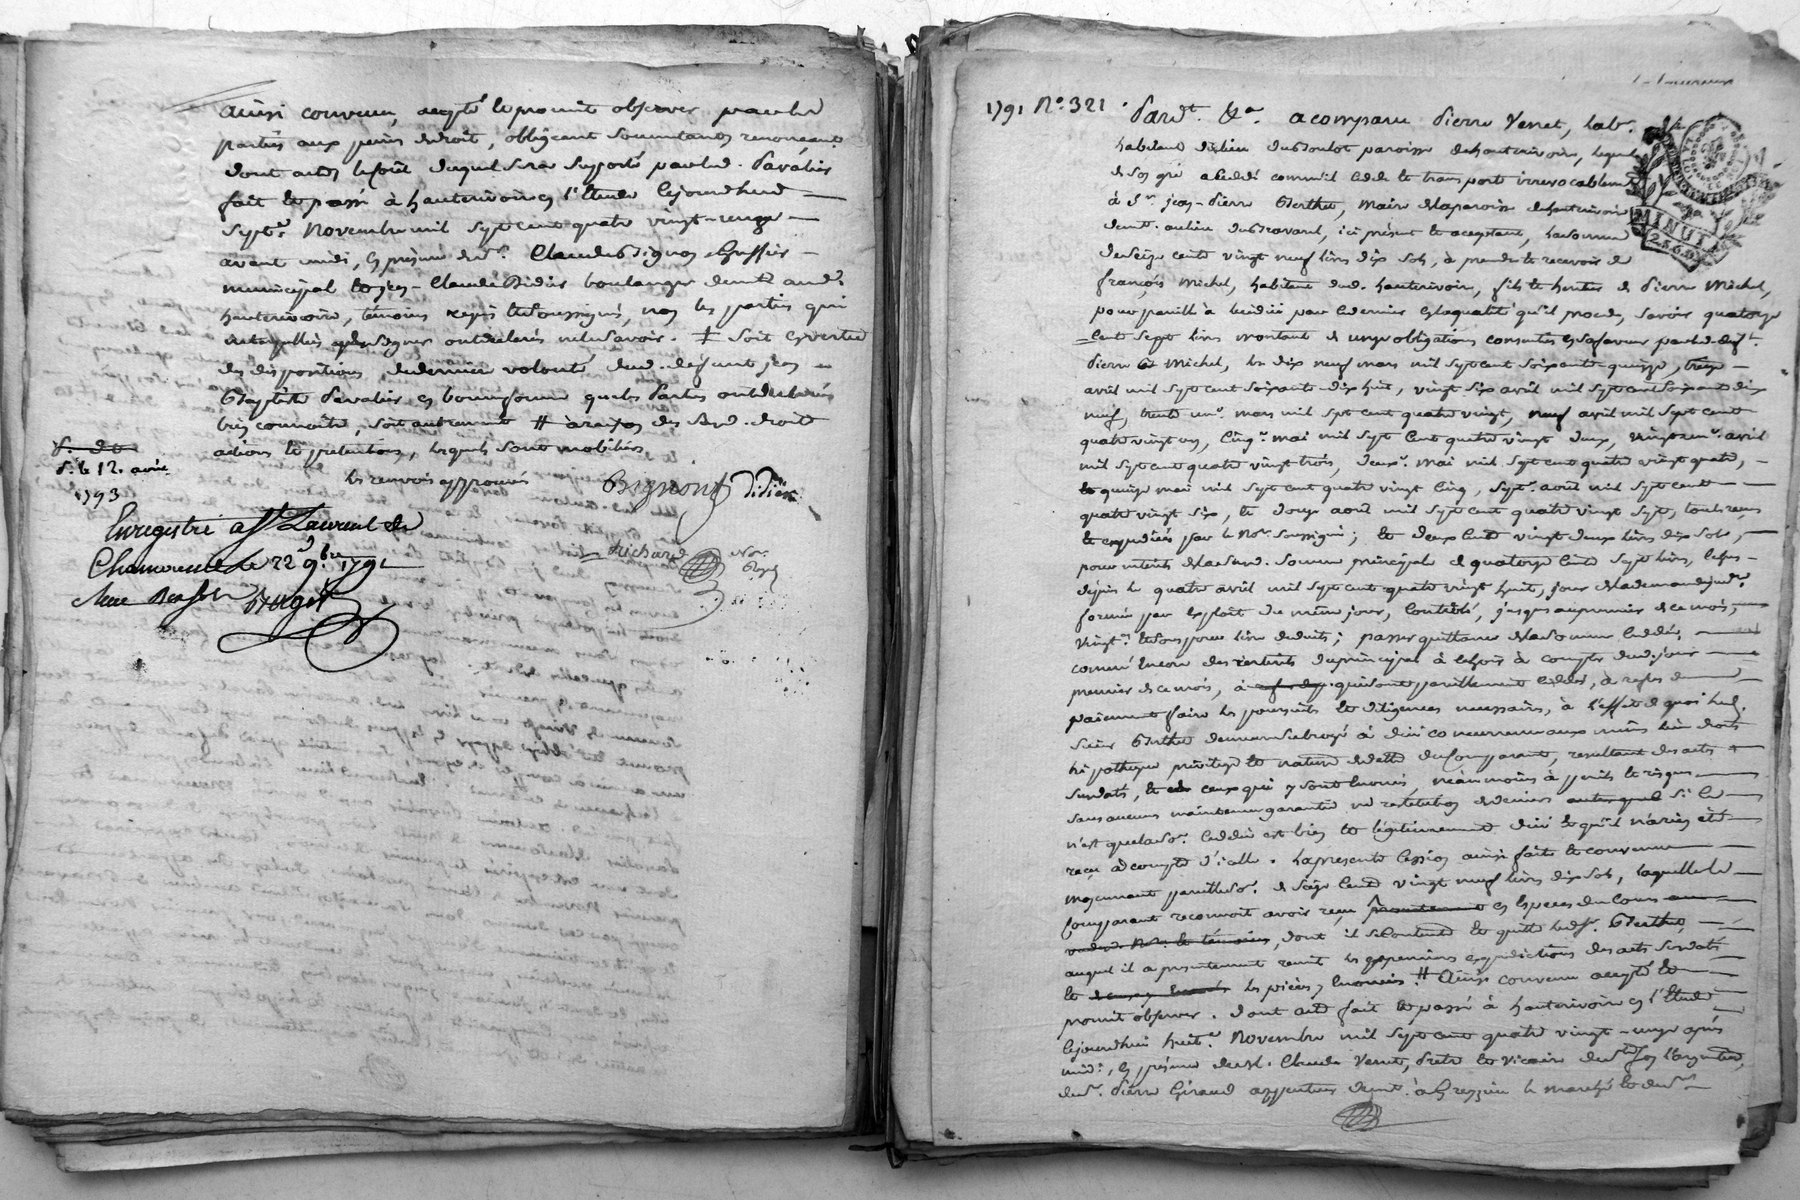 ainsi convenu, accepté et promit observer par lesd
parties aux peines de droit, obligeant soumettants renonceants
dont acte, le coût duquel sera supporté par led. Pavalier
fait et passé à hauterivoire en l'Etude cejourdhui
sept.e Novembre mil sept cent quatre vingt-onze
avant midi, en présence de s.r Claude Bignon Greffier
municipal et jean-Claude Didier boulanger demt aud.
hauterivoire, témoins requis et soussignés, non les parties qui
interpellées de signer ont déclaré ne le savoir. soit en vertu
des dispositions de dernier volonté dud. deffunt jean
Baptiste Pavalier en bonne forme que les parties ont déclaré
bien connoitre, soit autrement # à raison des sud. droit
actions et prétentions, lesquels sont mobiliers
les renvois approuvés
Bignon Didier
P. le 12. avril
1793
Richard Nore
Royal
Enregistré a St Laurent de
Chamousset le 22 9.bre 1791
Berger
1791 N.o 321 Pard.t &.a a comparu Pierre Verret, lab.r
habitant du lieu du Boulot paroisse de hauterivoire, lequel
de son gré a cédé comme il cède et transporte irrevocablement
à S.r jean-Pierre Berthet, maire de la paroisse de hauterivoire
demt. au lieu du Travard, ici présent et acceptant, la somme
de seize cent vingt neuf livres dix sols, à prendre et recevoir de
françois Michel, habitant dud. hauterivoire, fils et heritier de Pierre Michel,
pour pareille à lui due par ce dernier en la qualité qu'il procede, savoir quatorze
cent sept livres montant de onze obligations consenties en sa faveur par led. deff.t
Pierre Michel, les dix neuf mars mil sept cent soixante-quinze, treize
avril mil sept cent soixante dix huit, vingt six avril mil sept cent soixante dix
neuf, trente un.e mars mil sept cent quatre vingt, neuf avril mil sept cent
quatre vingt un, cinq.e mai mil sept cent quatre vingt deux, vingt neuv.e avril
mil sept cent quatre vingt trois, deux.e mai mil sept cent quatre vingt quatre,
le quinze mai mil sept cent quatre vingt cinq, sept.e août mil sept cent
quatre vingt six, et douze août mil sept cent quatre vingt sept, toutes reçues
et expédiées par le No.re soussigné; et deux cent vingt deux livres dix sols,
pour intérêts de la sud. somme principale de quatorze cent sept livres, echus
depuis le quatre avril mil sept cent quatre vingt huit, jour de la demande jud.re
formée par exploit du même jour, Contrôlé, jusques au premier de ce mois,
vingt.e et sous pour livre déduits; passer quittance de la somme cedée,
comme encore des intérêts du principal à echoir à compter dud. jour
premier de ce mois, qui sont pareillement cédés, à defaut de
paiement faire les poursuites et diligences necessaires, à l'effet de quoi led.
sieur Berthet demeure subrogé à lui concurremment aux mêmes lieu droits
hipotheque privilege et nature de dette du Comparant, resultant des actes
susdatés, et ceux qui y sont enoncés, néanmoins à ses perils et risques
sans aucune maintenue garantie ni restitution de deniers si ce
n'est que la so.e cedée est bien et légitimement due et qu'il n'a rien été
reçu à compte d'icelle. La presente Cession ainsi faite et convenue
moyennant pareille so.e de seize cent vingt neuf livres dix sols, laquelle le
Comparant reconnoit avoir reçu en especes du Cours
dont il se Contente et quitte led. s.r Berthet,
auquel il a presentement remit les premieres expeditions des actes susdatés
et les pièces y enoncées. # Ainsi convenu accepté et
promit observer. Dont acte fait et passé à hauterivoire en l'Etude
cejourdhui huit.e Novembre mil sept cent quatre vingt-onze après
midi, en présence de s.r Claude Verret, Prêtre et Vicaire de St foy l'argentière,
de s.r Pierre Giraud appenteur demt. à Grezieu le marché et de s.r
MINUT